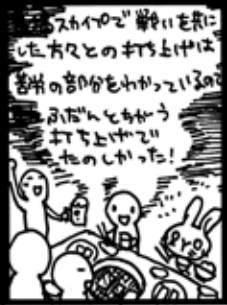 スカイプで戦いを共に
した方々との打ち上げは
苦労の部分をわかっているので
ふだんとちがう
打ち上げで
たのしかった！